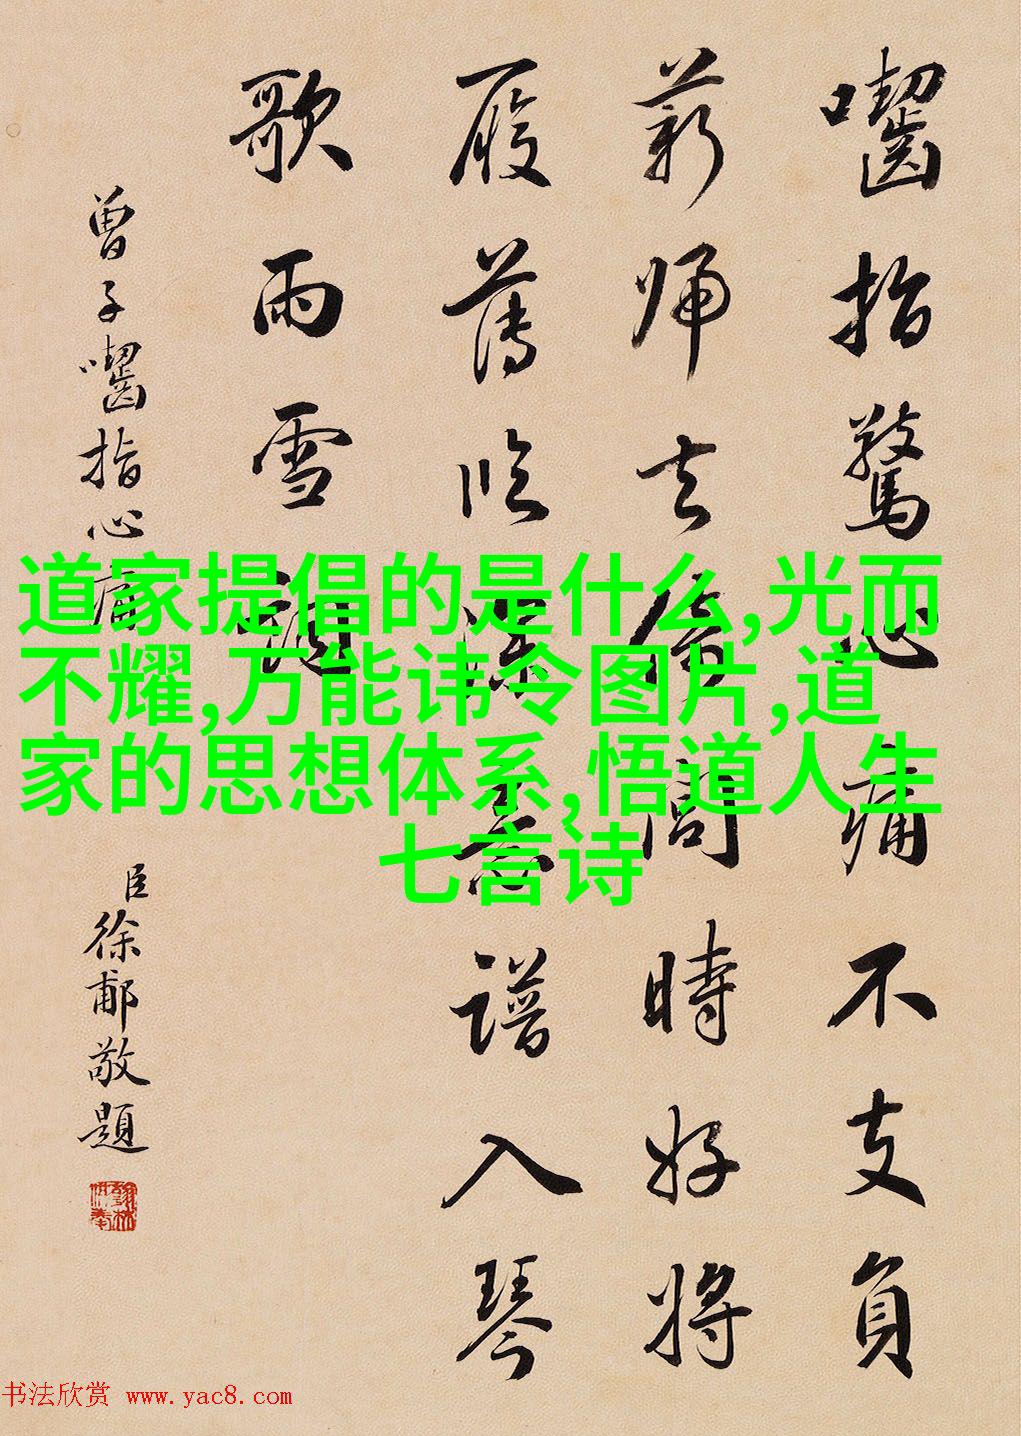 囓指驚心痛不支負
薪歸去倚閭時好將
履薄臨深意譜入琴
歌雨雪詞
曾子囓指心痛
臣徐郙敬題
道家提倡的是什么,光而
不耀,万能讳令图片,道
家的思想体系,悟道人生
七言诗
书法欣赏 www.yac8.com